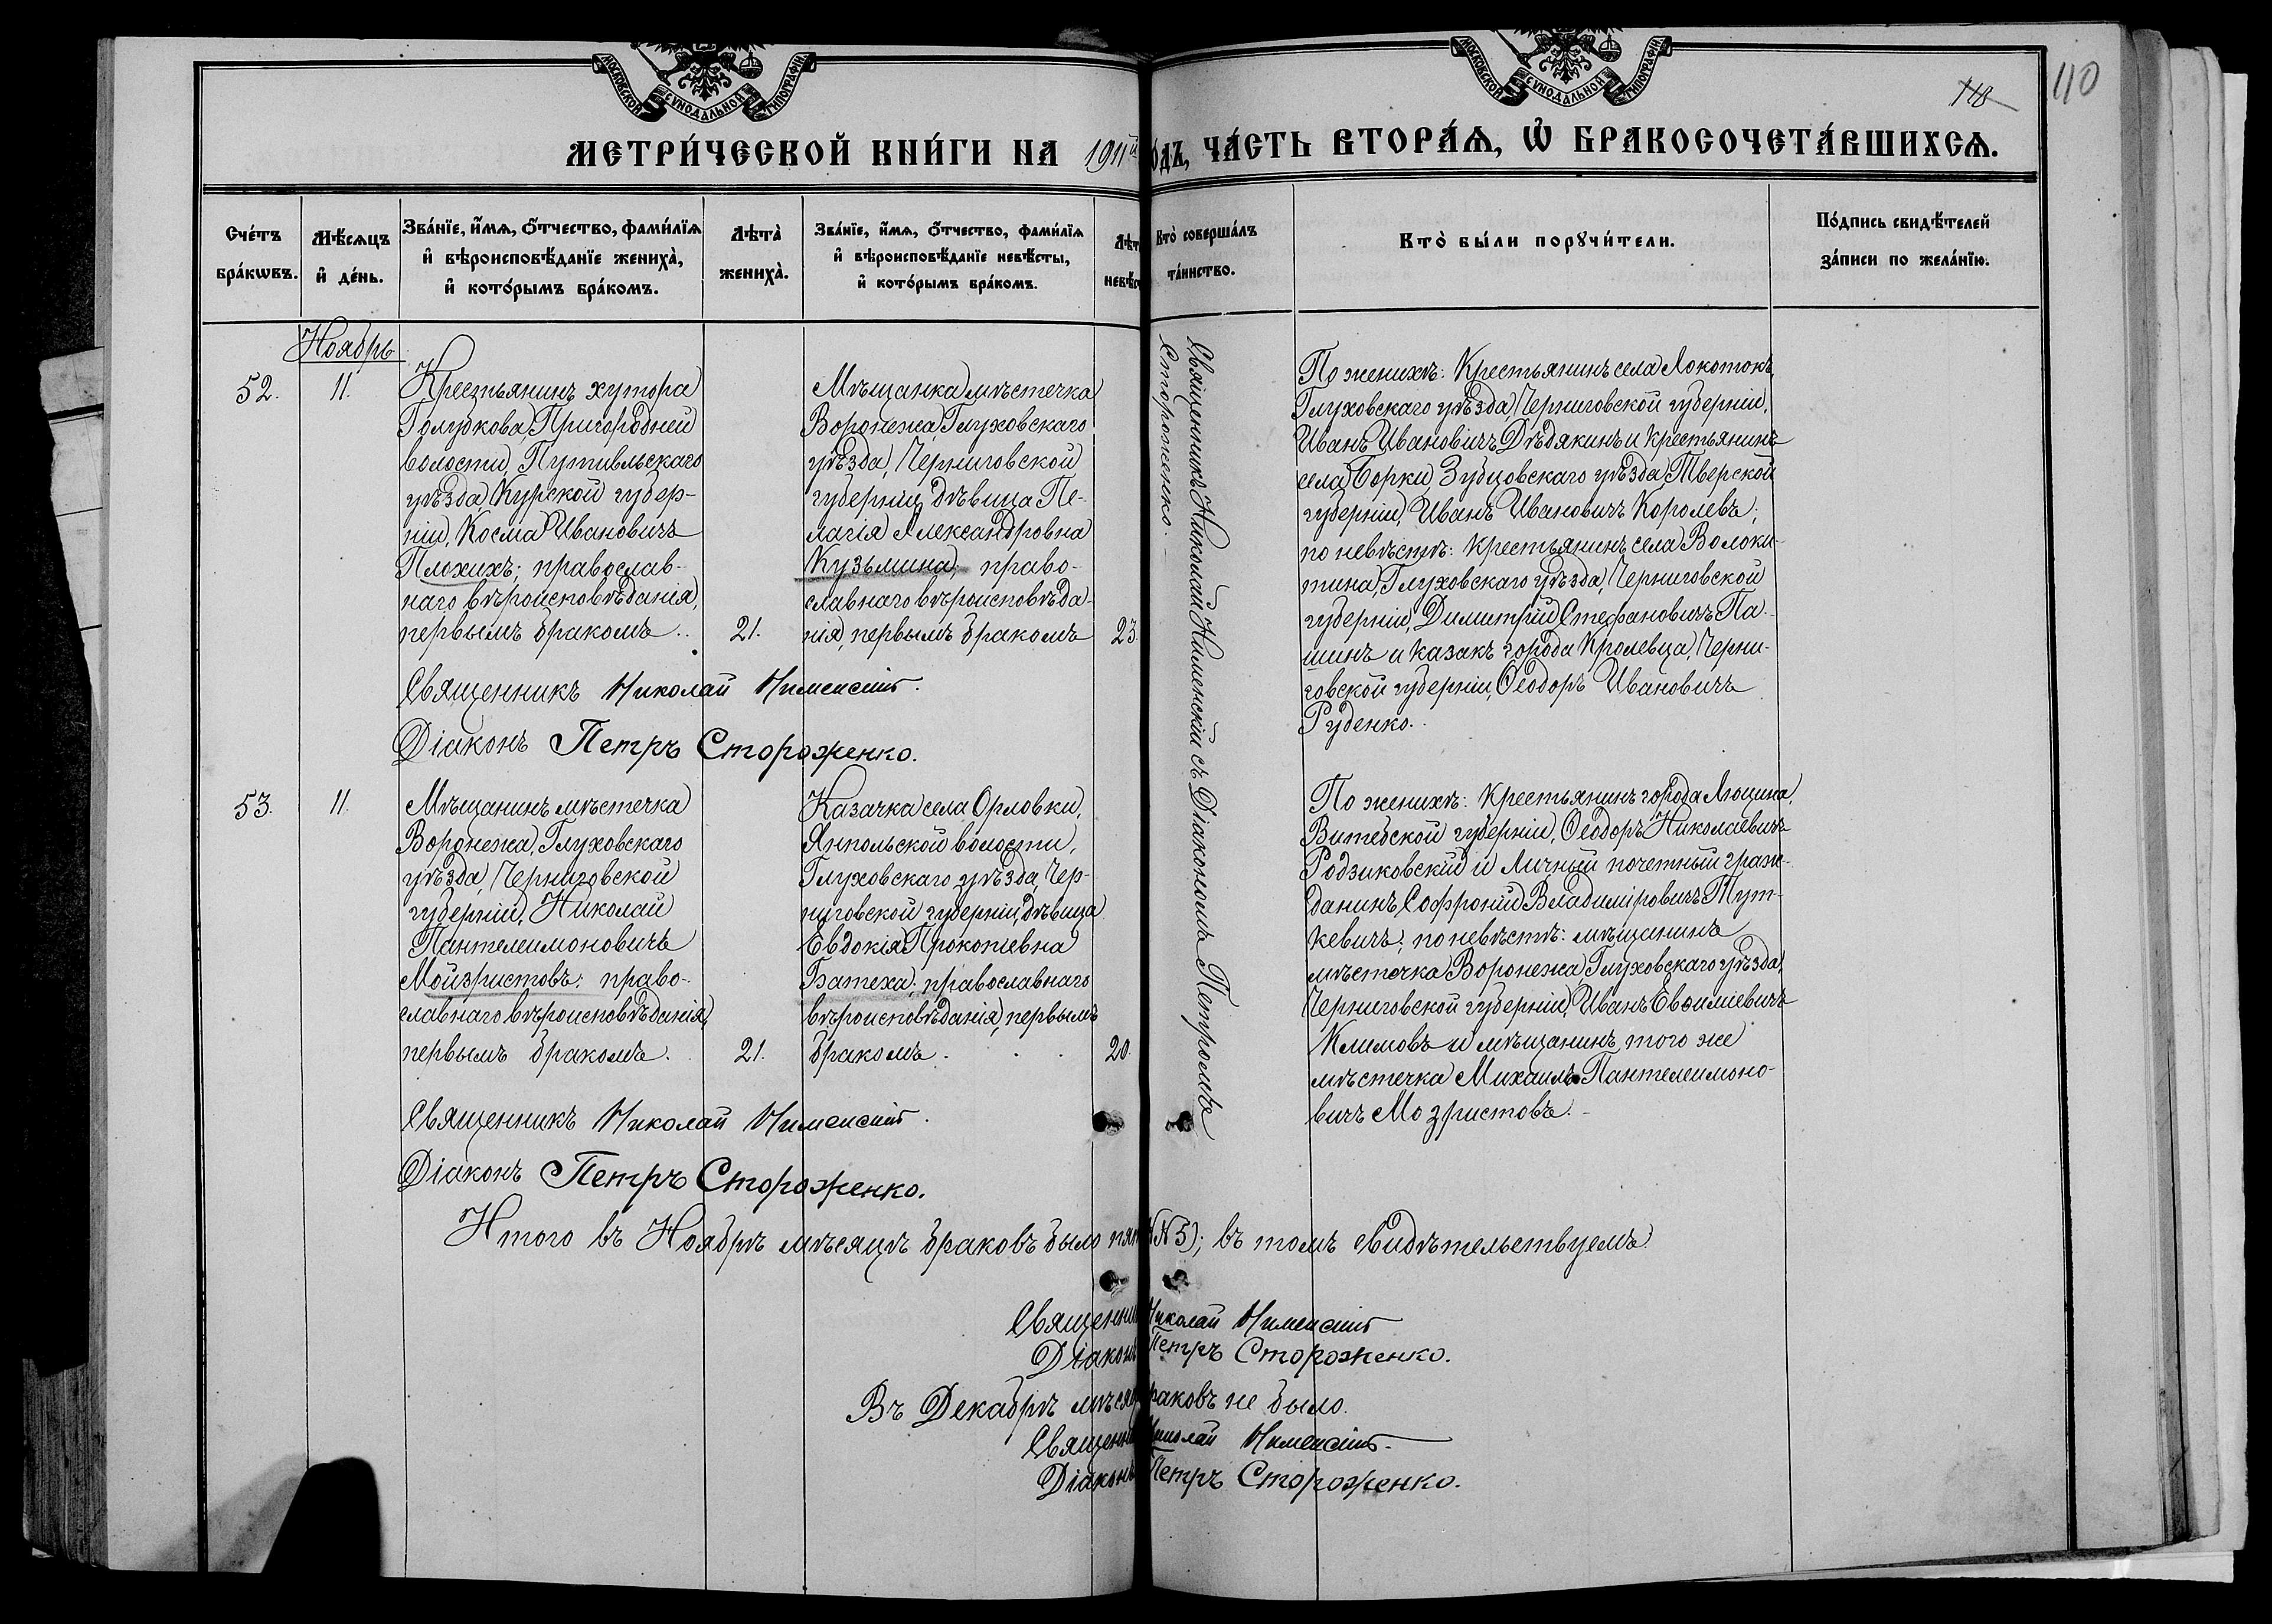 МОСКОВСКОЙ СѴНОДАЛЬНОЙ ТИПОГРАФІИ
МОСКОВСКОЙ СѴНОДАЛЬНОЙ ТИПОГРАФІИ
110
110
МЕТРИ́ЧЕСКОЙ КНИ́ГИ НА 1911й
о́дъ, ЧА́СТЬ ВТОРА́Ѧ, Ѡ҆ БРАКОСОЧЕТА́ВШИХСѦ.
Сче́тъ бра́кѡвъ.
Мѣ́сѧцъ и҆ де́нь.
Зва́нїе, и҆́мѧ, ѻ҆́тчество, фами́лїѧ и҆ вѣроисповѣ́данїе жениха̀, и҆ кото́рымъ бра́комъ.
Лѣта̀ жениха̀.
Зва́нїе, и҆́мѧ, ѻ҆́тчество, фами́лїѧ и҆ вѣроисповѣ́данїе невѣ́сты, и҆ кото́рымъ бра́комъ.
Лѣт невѣ́с
Кто̀ соверша́лъ та́инство.
Кто̀ бы́ли порꙋчи́тели.
По́дпись свидѣ́телей за́писи по жела́нїю.
Ноябрь
52.
11.
Крестьянинъ хутора
Голубкова, Пригородней
волости, Путивльскаго
уѣзда, Курской губер-
ніи, Косма Ивановичъ
Плохихъ; православ-
наго вѣроисповѣданія,
первымъ бракомъ.
21.
Мѣщанка мѣстечка
Воронежа, Глуховскаго
уѣзда, Черниговской
губерніи, дѣвица Пе-
лагія Александровна
Кузьмина, право-
славнаго вѣроисповѣда-
нія, первымъ бракомъ
23.
Священникъ Николай Нименскій съ Діакономъ Петромъ
Стороженко.
По женихѣ: Крестьянинъ села Локотокъ,
Глуховскаго уѣзда, Черниговской губерніи,
Иванъ Ивановичъ Дѣдякинъ и крестьянинъ
села Борки, Зубцовскаго уѣзда, Тверской
губерніи, Иванъ Ивановичъ Королевъ;
по невѣстѣ: крестьянинъ села Волоки-
тина, Глуховскаго уѣзда, Черниговской
губерніи, Димитрій Стефановичъ Па-
шинъ и казакъ города Кролевца, Черни-
говской губерніи, Ѳеодоръ Ивановичъ
Руденко.
Священникъ Николай Нименскій.
Діаконъ Петръ Стороженко.
53.
11.
Мѣщанинъ мѣстечка
Воронежа, Глуховскаго
уѣзда, Черниговской
губерніи, Николай
Пантелеимоновичъ
Мойзристовъ; право-
славнаго вѣроисповѣданія,
первымъ бракомъ.
21.
Казачка села Орловки,
Янпольской волости,
Глуховскаго уѣзда, Чер-
ниговской губерніи, дѣвица
Евдокія Прокопіевна
Батеха; православнаго
вѣроисповѣданія, первымъ
бракомъ.
20.
По женихѣ: крестьянинъ города Люцина,
Витебской губерніи, Ѳеодоръ Николаевичъ
Родзиковскій и Личный почетный граж-
данинъ, Софроній Владиміровичъ Тут-
кевичъ; по невѣстѣ: мѣщанинъ
мѣстечка Воронежа, Глуховскаго уѣзда,
Черниговской губерніи, Иванъ Евѳиміевичъ
Климовъ и мѣщанинъ того же
мѣстечка Михаилъ Пантелеимоно-
вичъ Мозристовъ.
Священникъ Николай Нименскій.
Діаконъ Петръ Стороженко.
Итого въ Ноябрѣ мѣсяцѣ браковъ было пят №5); въ томъ свидѣтельствуемъ.
Священни Николай Нименскій
Діаконъ Петръ Стороженко.
Въ Декабрѣ мѣсяц раковъ не было.
Священни Николай Нименскій.
Діаконъ Петръ Стороженко.